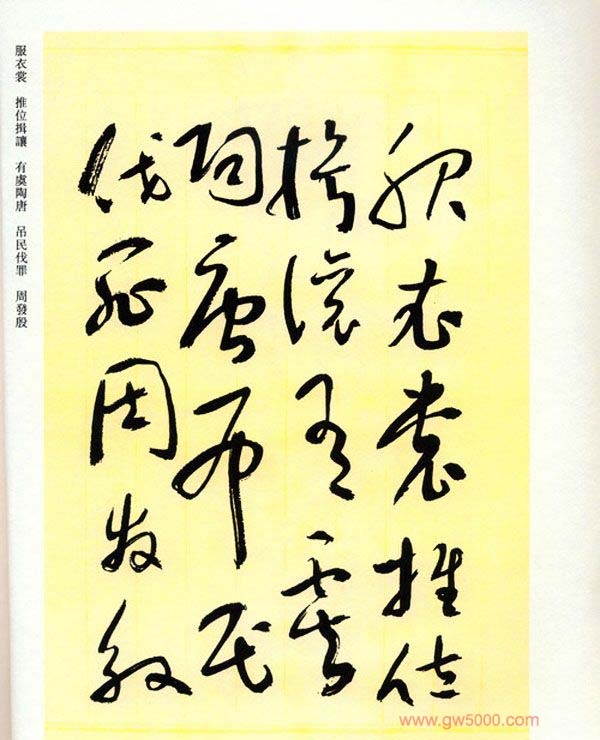 服衣裳推位
揖讓有虞
陶唐吊民
伐罪周發殷
服衣裳 推位揖讓 有虞陶唐 吊民伐罪 周發殷
www.gw5000.com